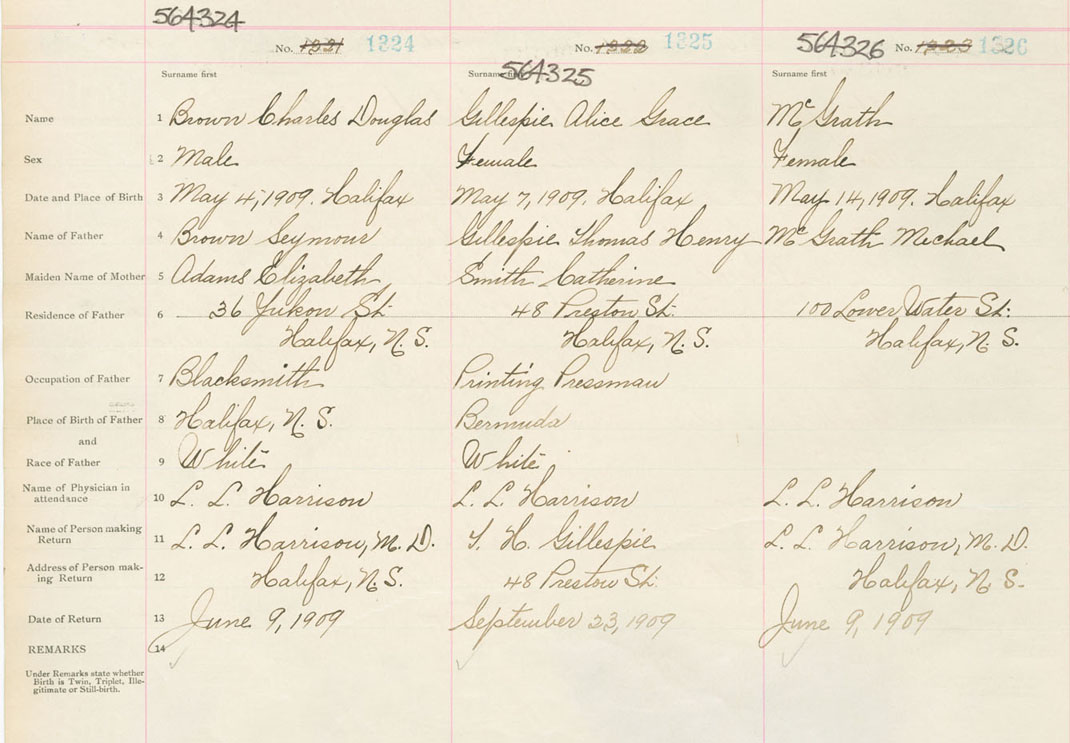 564324
No. 1321 1324 No. 1322 1325 564326 No. 1323 1326
Surname first Surname first 564325 Surname first
Name 1 Brown Charles Douglas Gillespie Alice Grace McGrath
Sex 2 Male Female Female
Date and Place of Birth 3 May 4, 1909. Halifax May 7, 1909. Halifax May 14, 1909. Halifax
Name of Father 4 Brown Seymour Gillespie Thomas Henry McGrath Michael
Maiden Name of Mother 5 Adams Elizabeth Smith Catherine
Residence of Father 6 36 Yukon St. 48 Preston St. 100 Lower Water St.
Halifax, N.S. Halifax, N.S. Halifax, N.S.
Occupation of Father 7 Blacksmith Printing Pressman
Place of Birth of Father 8 Halifax, N.S. Bermuda
and
Race of Father 9 White White
Name of Physician in
attendance 10 L. L. Harrison L. L. Harrison L. L. Harrison
Name of Person making
Return 11 L. L. Harrison, M.D. T. H. Gillespie L. L. Harrison, M.D.
Address of Person mak-
ing Return 12 Halifax, N.S. 48 Preston St. Halifax, N.S.
Date of Return 13 June 9, 1909 September 23, 1909 June 9, 1909
REMARKS 14
Under Remarks state whether
Birth is Twin, Triplet, Ille-
gitimate or Still-birth.